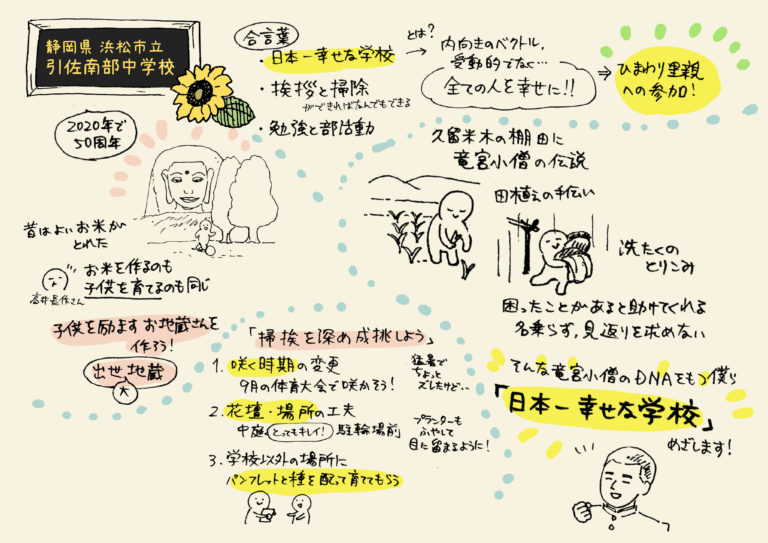 静岡県 浜松市立
引佐南部中学校
2020年で
50周年
合言葉
・日本一幸せな学校
・挨拶と掃除
ができればなんでもできる
・勉強と部活動
とは?
内向きのベクトル、
受動的でなく…
全ての人を幸せに!!
ひまわり里親
への参加!
久留米木の棚田に
竜宮小僧の伝説
田植えの手伝い
洗たくの
とりこみ
困ったことがあると助けてくれる
名乗らず,見返りを求めない
昔はよいお米が
とれた
お米を作るのも
子供を育てるのも同じ
高井長作さん
子供を励ます お地蔵さんを
作ろう!
出世地蔵
大
「掃挨を深め成挑しよう」
1. 咲く時期の変更
9月の体育大会で咲かそう!
猛暑で
ちょっと
ズレたけど…
2. 花壇・場所の工夫
中庭 とってもキレイ! 駐輪場前
プランターも
ふやして
目に留まるように!
3. 学校以外の場所に
パンフレットと種を配って育ててもらう
そんな竜宮小僧のDNAをもつ僕ら
「日本一幸せな学校」
めざします!